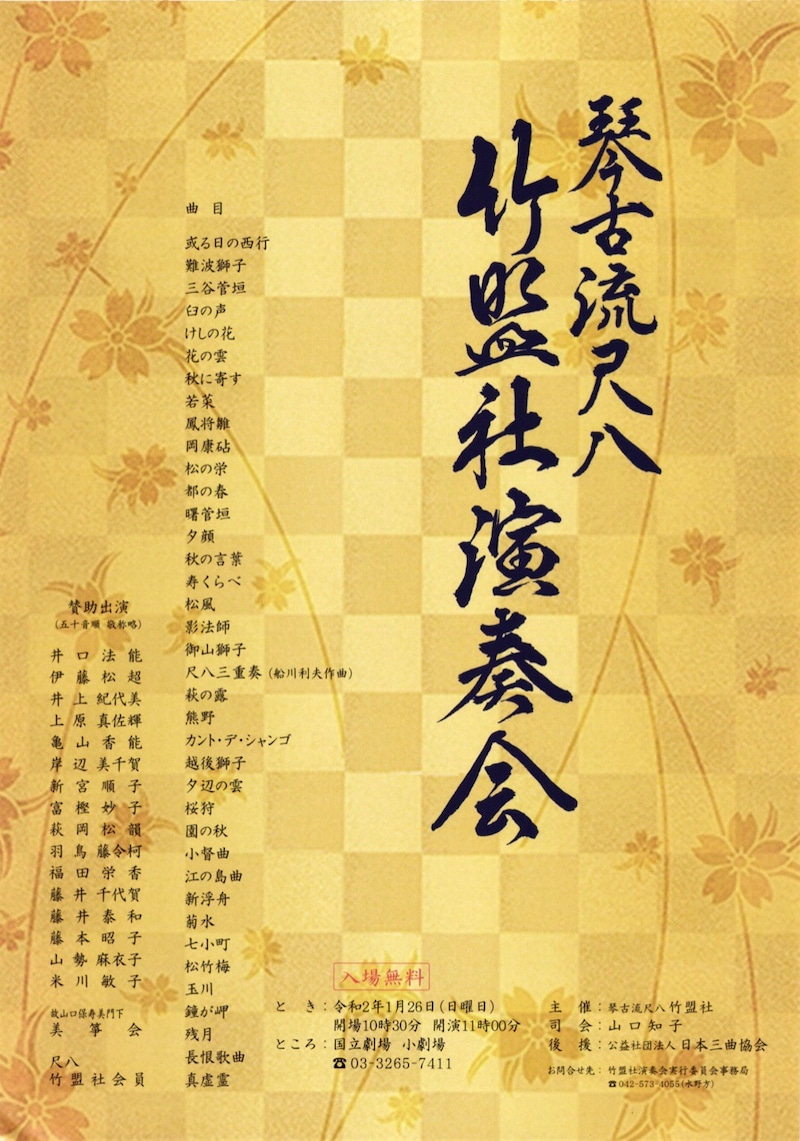 琴古流尺八
竹盟社演奏会
曲目
或る日の西行
難波獅子
三谷菅垣
臼の声
けしの花
花の雲
秋に寄す
若菜
鳳将雛
岡康砧
松の栄
都の春
曙菅垣
夕顔
秋の言葉
寿くらべ
松風
影法師
御山獅子
尺八三重奏(船川利夫作曲)
萩の露
熊野
カント・デ・シャンゴ
越後獅子
夕辺の雲
桜狩
園の秋
小督曲
江の島曲
新浮舟
菊水
七小町
松竹梅
玉川
鐘が岬
残月
長恨歌曲
真虚霊
賛助出演
(五十音順 敬称略)
井口法能
伊藤松超
井上紀代美
上原真佐輝
亀山香能
岸辺美千賀
新宮順子
富樫妙子
萩岡松韻
羽鳥藤令柯
福田栄香
藤井千代賀
藤井泰和
藤本昭子
山勢麻衣子
米川敏子
故山口保寿美門下
美箏会
尺八
竹盟社会員
入場無料
とき:令和2年1月26日(日曜日)
開場10時30分 開演11時00分
ところ:国立劇場 小劇場
☎03-3265-7411
主催:琴古流尺八竹盟社
司会:山口知子
後援:公益社団法人日本三曲協会
お問合せ先:竹盟社演奏会実行委員会事務局
☎042-573-4055(水野方)